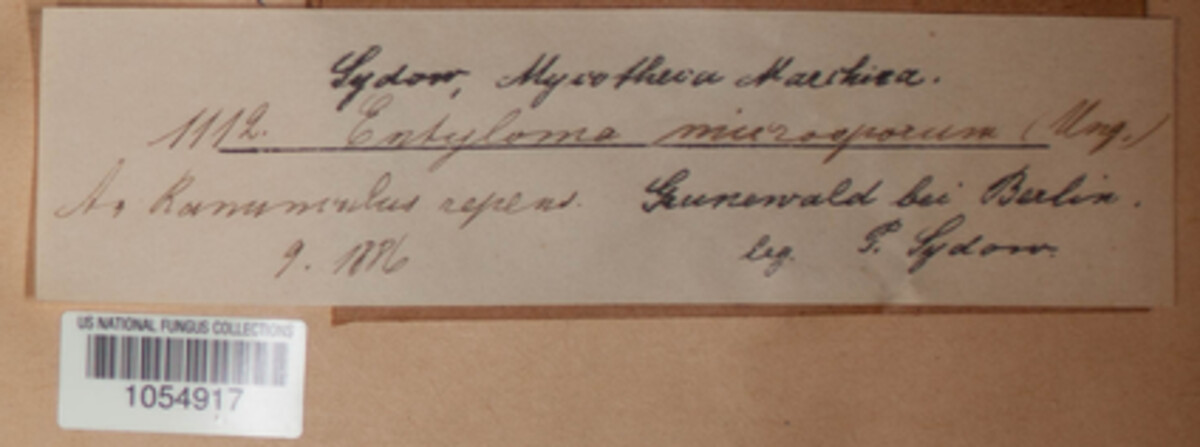 Sydow, Mycotheca Marchica.
1112. Entyloma microsporum (Ung.)
An Ranunculus repens. Grunewald bei Berlin.
9. 1886 leg. P. Sydow.
US NATIONAL FUNGUS COLLECTIONS
1054917